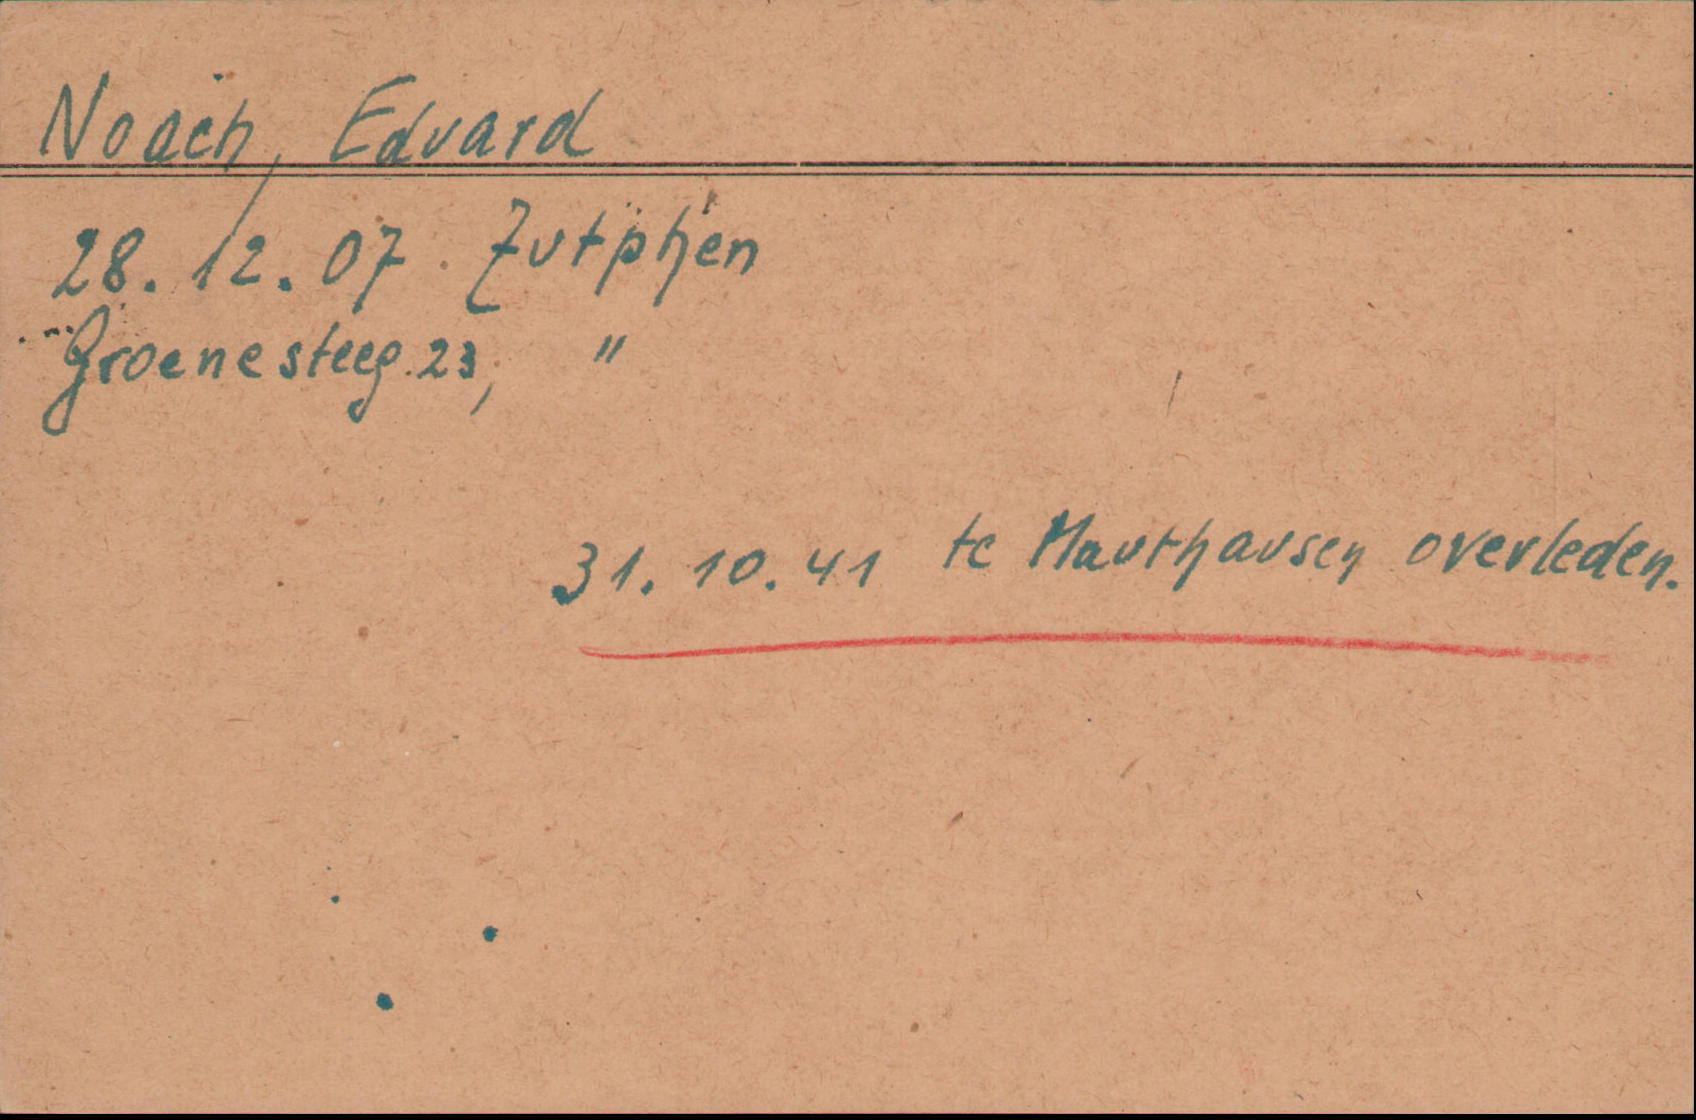 Noach, Eduard
28.12.07 Zutphen
Groenesteeg 23, "
31.10.41 te Mauthausen overleden.